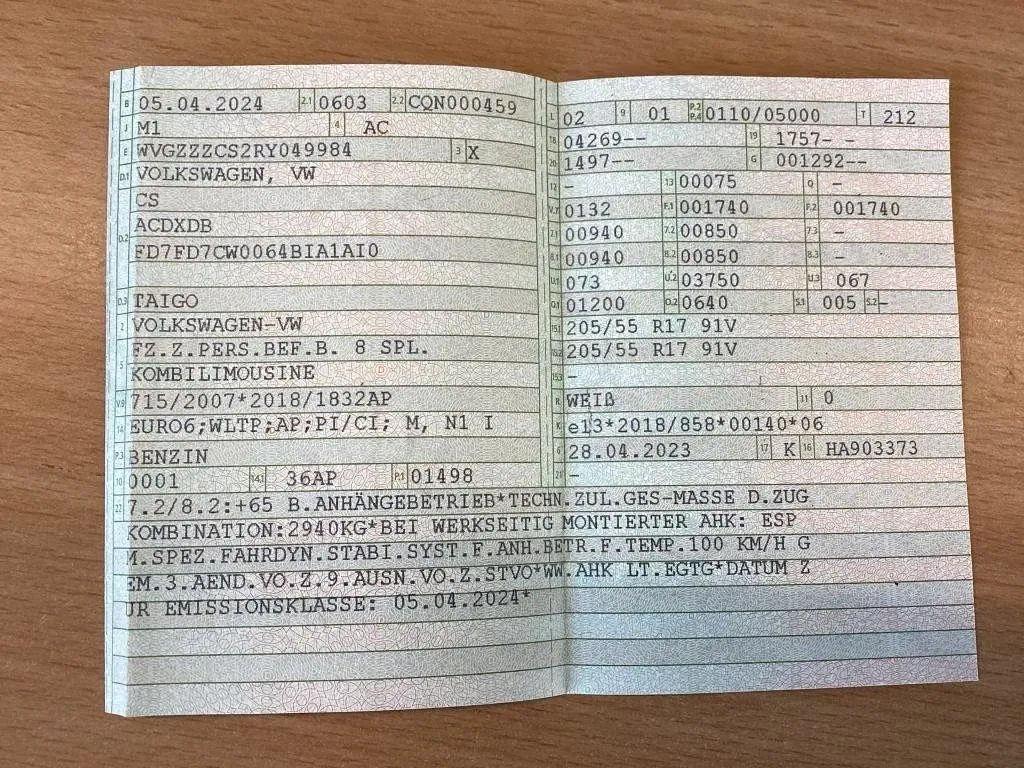 B 05.04.2024 2.1 0603 2.2 CQN000459
J M1 4 AC
E WVGZZZCS2RY049984 3 X
D.1 VOLKSWAGEN, VW
CS
D.2 ACDXDB
FD7FD7CW0064BIA1AI0
D.3 TAIGO
2 VOLKSWAGEN-VW
5 FZ.Z.PERS.BEF.B. 8 SPL.
KOMBILIMOUSINE
V.9 715/2007*2018/1832AP
14 EURO6;WLTP;AP;PI/CI; M, N1 I
P.3 BENZIN
10 0001 14.1 36AP P.1 01498
L 02 9 01 P.2 P.4 0110/05000 T 212
18 04269-- 19 1757- -
20 1497-- G 001292--
12 - 13 00075 Q -
V.7 0132 F.1 001740 F.2 001740
7.1 00940 7.2 00850 7.3 -
8.1 00940 8.2 00850 8.3 -
U.1 073 U.2 03750 U.3 067
O.1 01200 O.2 0640 S.1 005 S.2 -
15.1 205/55 R17 91V
15.2 205/55 R17 91V
15.3 -
R WEIß 11 0
K e13*2018/858*00140*06
6 28.04.2023 17 K 16 HA903373
21 -
22 7.2/8.2:+65 B.ANHÄNGEBETRIEB*TECHN.ZUL.GES-MASSE D.ZUG
KOMBINATION:2940KG*BEI WERKSEITIG MONTIERTER AHK: ESP
M.SPEZ.FAHRDYN.STABI.SYST.F.ANH.BETR.F.TEMP.100 KM/H G
EM.3.AEND.VO.Z.9.AUSN.VO.Z.STVO*WW.AHK LT.EGTG*DATUM Z
UR EMISSIONSKLASSE: 05.04.2024*